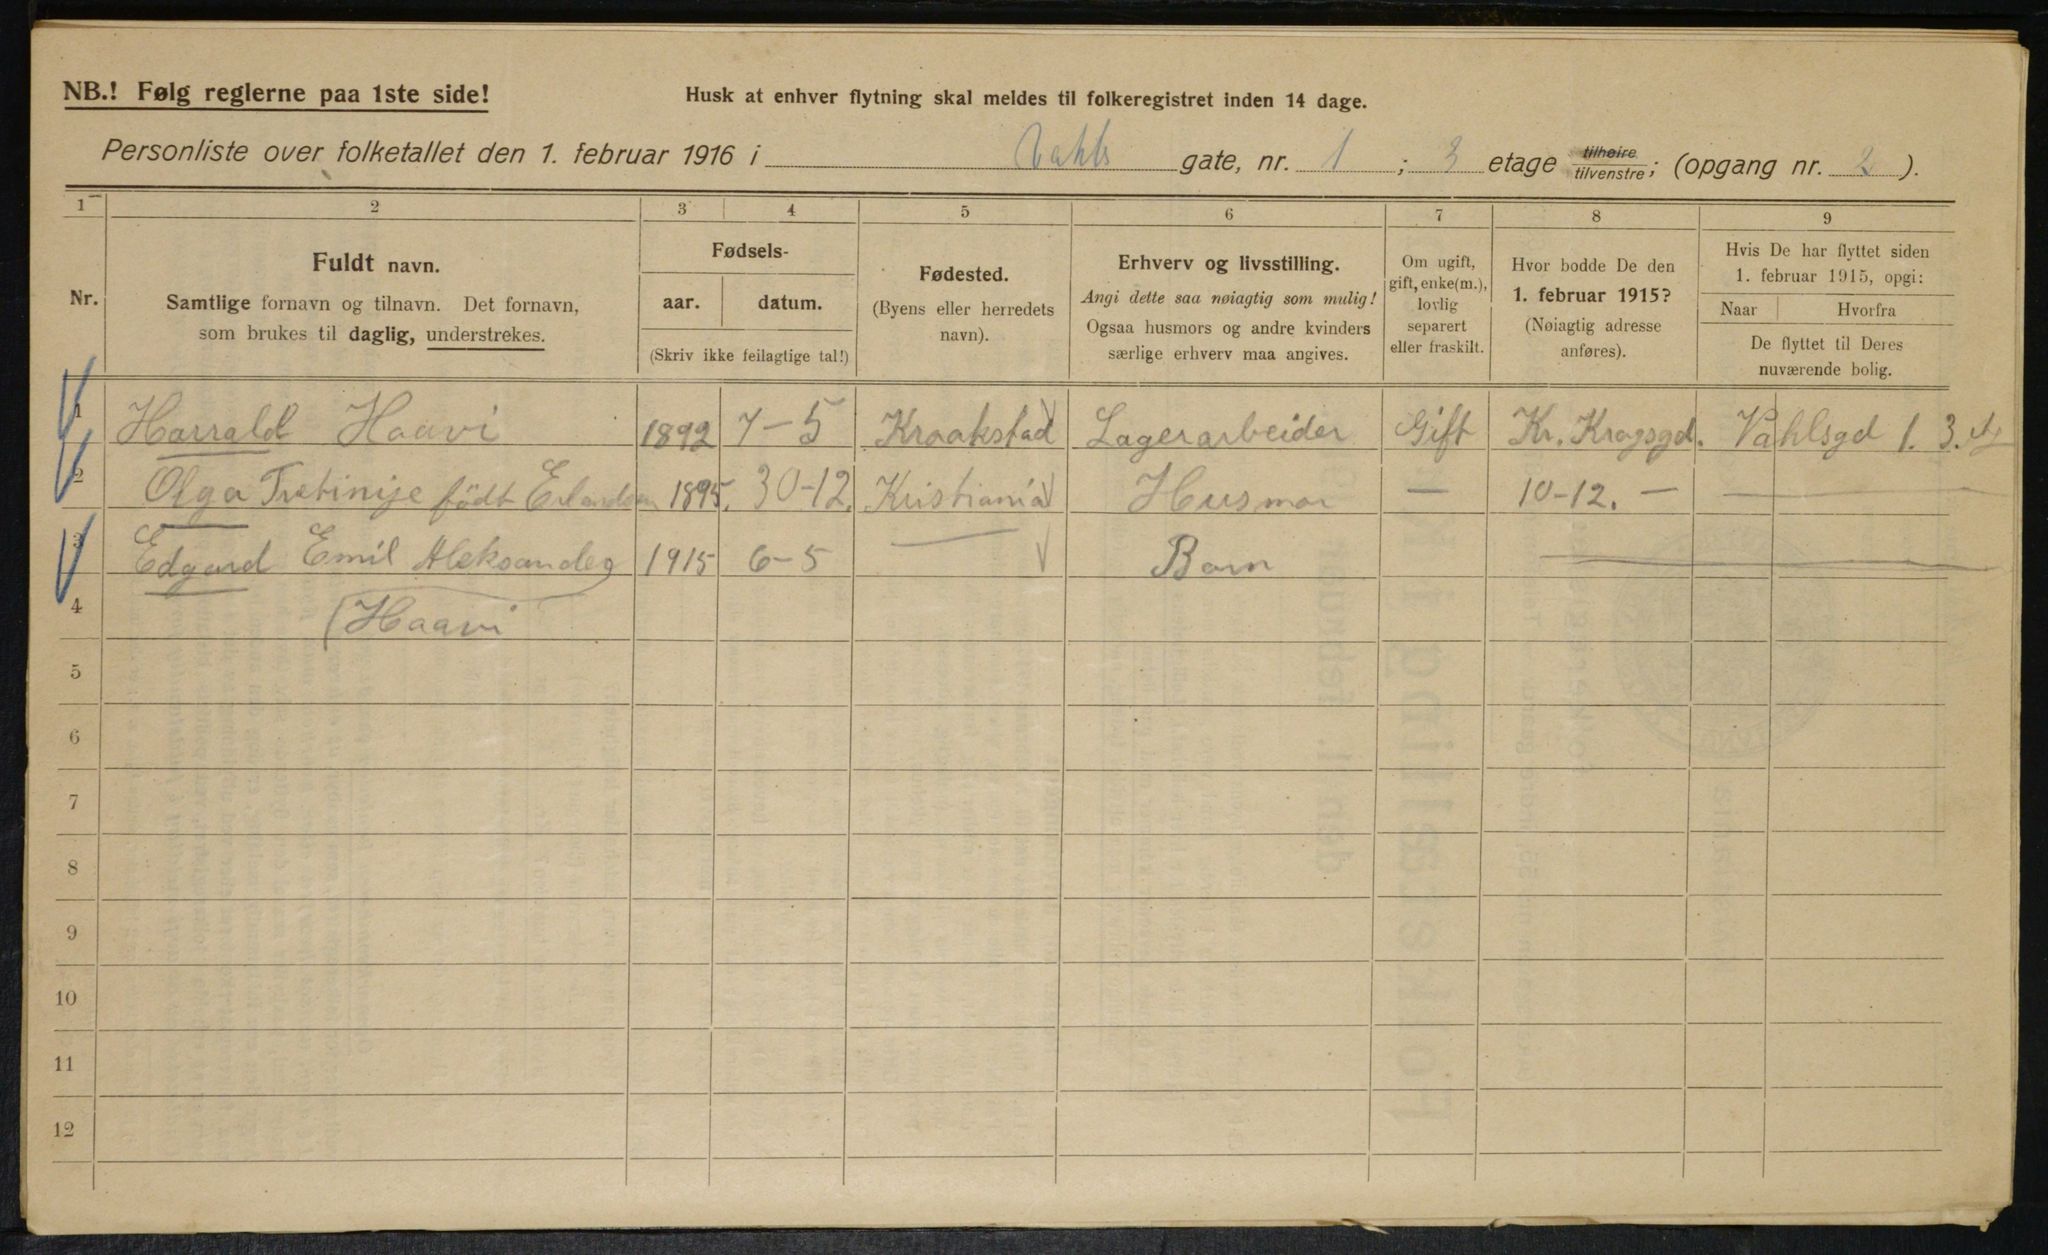 NB.! Følg reglerne paa 1ste side!
Husk at enhver flytning skal meldes til folkeregistret inden 14 dage.
Personliste over folketallet den 1. februar 1916 i Vahls gate, nr. 1 ; 3 etage tilhøire/tilvenstre; (opgang nr. 2 ).
1 2 3 4 5 6 7 8 9
Nr.
Fuldt navn.
Samtlige fornavn og tilnavn. Det fornavn,
som brukes til daglig, understrekes.
Fødsels-
aar. datum.
(Skriv ikke feilagtige tal!)
Fødested.
(Byens eller herredets
navn).
Erhverv og livsstilling.
Angi dette saa nøiagtig som mulig!
Ogsaa husmors og andre kvinders
særlige erhverv maa angives.
Om ugift,
gift, enke(m.),
lovlig
separert
eller fraskilt.
Hvor bodde De den
1. februar 1915?
(Nøiagtig adresse
anføres).
Hvis De har flyttet siden
1. februar 1915, opgi:
Naar Hvorfra
De flyttet til Deres
nuværende bolig.
1 Harrald Haavi 1892 7-5 Kraakstad Lagerarbeider Gift Kr. Krogsgd. Vahlsgd 1. 3.
2 Olga födt Erlandsen 1895. 30-12. Kristiania Husmor — 10-12. — —
3 Edgard Emil Aleksander 1915 6-5 — Barn —
4 (Haavi
5
6
7
8
9
10
11
12